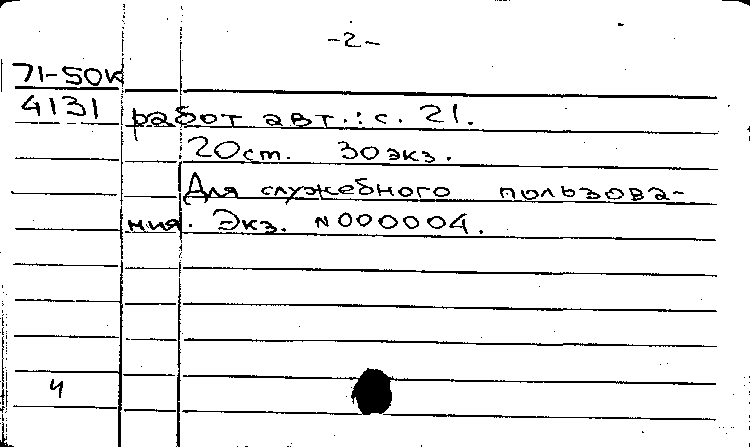 -2-
71-50к
4131 работ авт.: с. 21.
20ст. 30экз.
Для служебного пользова-
ния. Экз. N000004.
ч